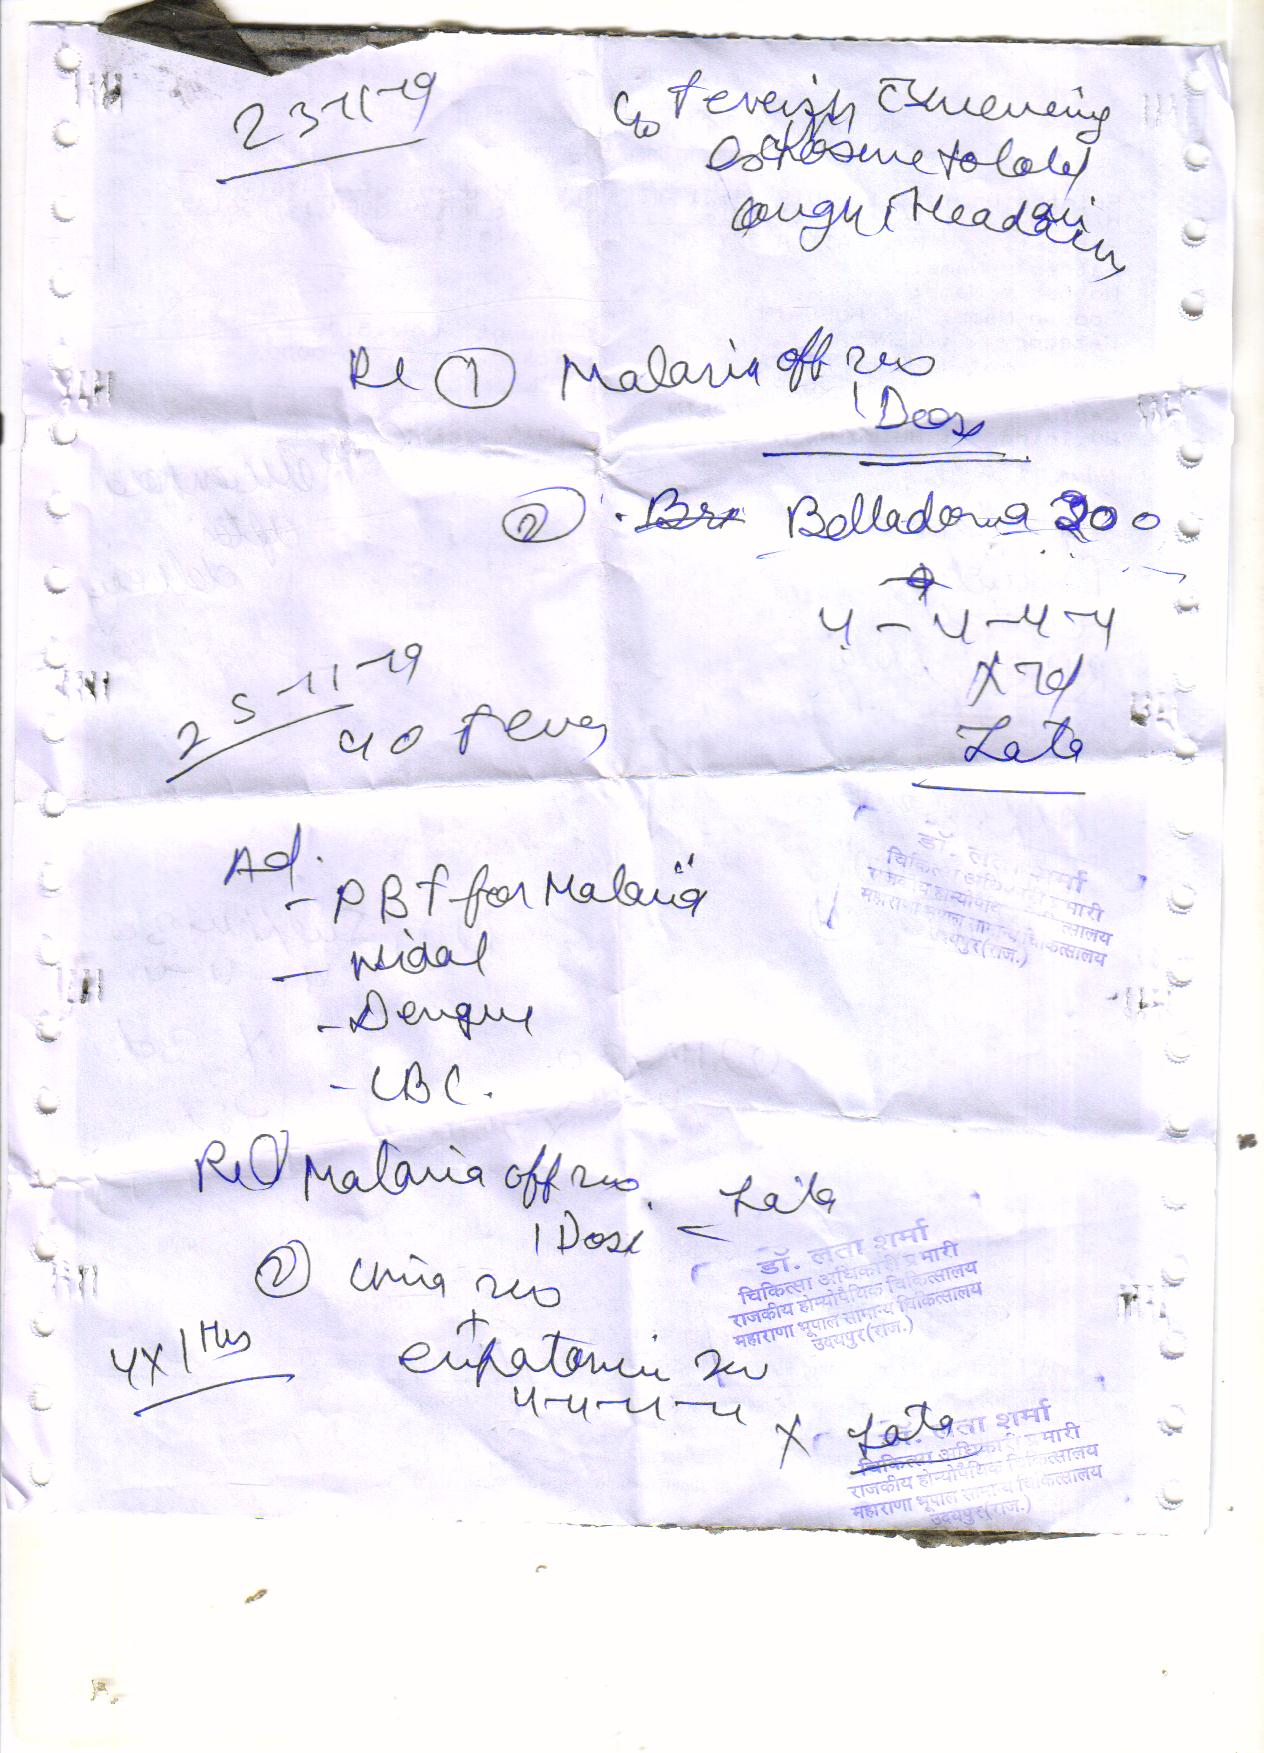 23-11-19
C/o Feverish Evening
Exposure to Cold
Cough Headache
Rx ① Malaria off 200
1 Dose
② Belladonna 200
4-4-4-4
X 7d
Lata
25-11-19
C/o Fever
Ad.
- PBF for Malaria
- Widal
- Dengue
- CBC.
डॉ. लता शर्मा
चिकित्सा अधिकारी प्रभारी
राजकीय होम्योपैथिक चिकित्सालय
महाराणा भूपाल सामान्य चिकित्सालय
उदयपुर(राज.)
Rx ① Malaria off 200
1 Dose
Lata
② China 200
+
Eupatorium 200
4-4-4-4
4x1 Hrs
डॉ. लता शर्मा
चिकित्सा अधिकारी प्रभारी
राजकीय होम्योपैथिक चिकित्सालय
महाराणा भूपाल सामान्य चिकित्सालय
उदयपुर(राज.)
X Lata
डॉ. लता शर्मा
चिकित्सा अधिकारी प्रभारी
राजकीय होम्योपैथिक चिकित्सालय
महाराणा भूपाल सामान्य चिकित्सालय
उदयपुर(राज.)